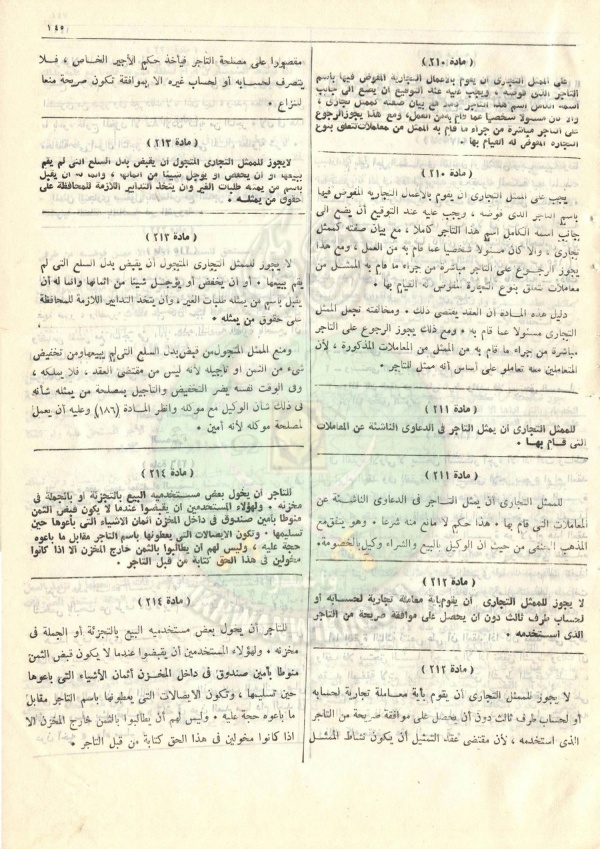 ١٤٥
( مادة ٢١٠ )
على الممثل التجارى ان يقوم بالاعمال التجارية المفوض فيها باسم
التاجر الذى فوضه ، ويجب عليه عند التوقيع ان يضع الى جانب
اسمه الكامل اسم هذا التاجر كاملا مع بيان صفته كممثل تجارى ،
والا كان مسئولا شخصيا عما قام به من العمل، ومع هذا يجوز الرجوع
على التاجر مباشرة من جراء ما قام به الممثل من معاملات تتعلق بنوع
التجارة المفوض له القيام بها •
( مادة ٢١٠ )
يجب على الممثل التجارى ان يقوم بالأعمال التجارية المفوض فيها
باسم التاجر الذى فوضه ، ويجب عليه عند التوقيع أن يضع الى
جانب اسمه الكامل اسم هذا التاجر كاملا ، مع بيان صفته كممثل
تجارى ، والا كان مسئولا شخصيا عما قام به من العمل ، ومع هذا
يجوز الرجوع على التاجر مباشرة من جراء ما قام به الممثل من
معاملات تتعلق بنوع التجارة المفوض له القيام بها •
دليل هذه المادة أن العقد يقتضى ذلك • ومخالفته تجعل الممثل
التجارى مسئولا عما قام به • ومع ذلك يجوز الرجوع على التاجر
مباشرة من جراء ما قام به الممثل من المعاملات المذكورة ، لأن
المتعاملين معه تعاملو على أساس أنه ممثل للتاجر •
( مادة ٢١١ )
للممثل التجارى أن يمثل التاجر فى الدعاوى الناشئة عن المعاملات
التى قام بها •
( مادة ٢١١ )
للممثل التجارى أن يمثل التاجر فى الدعاوى الناشئة عن
المعاملات التى قام بها • هذا حكم لا مانع منه شرعا • وهو يتفق مع
المذهب الحنفى من حيث ان الوكيل بالبيع والشراء وكيل بالخصومة•
( مادة ٢١٢ )
لا يجوز للممثل التجارى أن يقوم باية معاملة تجارية لحسابه أو
لحساب طرف ثالث دون ان يحصل على موافقة صريحة من التاجر
الذى استخدمه •
( مادة ٢١٢ )
لا يجوز للممثل التجارى أن يقوم بأية معاملة تجارية لحسابه
أو لحساب طرف ثالث دون أن يحصل على موافقة صريحة من التاجر
الذى استخدمه ، لأن مقتضى عقد التمثيل أن يكون نشاط الممثل
مقصورا على مصلحة التاجر فيأخذ حكم الأجير الخاص ، فلا
يتصرف لحسابه أو لحساب غيره الا بموافقة تكون صريحة منعا
للنزاع •
( مادة ٢١٣ )
لايجوز للممثل التجارى المتجول أن يقبض بدل السلع التى لم يقم
ببيعها أو أن يخفض أو يؤجل شيئا من أثمانها، وانما له أن يقبل
باسم من يمثله طلبات الغير وأن يتخذ التدابير اللازمة للمحافظة على
حقوق من يمثله •
( مادة ٢١٣ )
لا يجوز للممثل التجارى المتجول أن يقبض بدل السلع التى لم
يقم ببيعها • أو أن يخفض أو يؤجل شيئا من اثمانها وانما له أن
يقبل باسم من يمثله طلبات الغير ، وأن يتخذ التدابير اللازمة للمحافظة
على حقوق من يمثله •
ومنع الممثل المتجول من قبض بدل السلع التى لم يبيعها ومن تخفيض
شىء من الثمن أو تأجيله لأنه ليس من مقتضى العقد ، فلا يملكه ،
وفى الوقت نفسه يضر التخفيض والتأجيل بمصلحة من يمثله شأنه
فى ذلك شأن الوكيل مع موكله وانظر المادة (١٨٦) وعليه أن يعمل
لمصلحة موكله لأنه أمين •
( مادة ٢١٤ )
للتاجر أن يخول بعض مستخدميه البيع بالتجزئة أو بالجملة فى
مخزنه • ولهؤلاء المستخدمين أن يقبضوا عندما لا يكون قبض الثمن
منوطا بأمين صندوق فى داخل المخزن أثمان الأشياء التى باعوها حين
تسليمها • وتكون الايصالات التى يعطونها باسم التاجر مقابل ما باعوه
حجة عليه ، وليس لهم أن يطالبوا بالثمن خارج المخزن الا اذا كانوا
مخولين فى هذا الحق كتابة من قبل التاجر •
( مادة ٢١٤ )
للتاجر أن يخول بعض مستخدميه البيع بالتجزئة أو الجملة فى
مخزنه • ولهؤلاء المستخدمين أن يقبضوا عندما لا يكون قبض الثمن
منوطا بأمين صندوق فى داخل المخزن أثمان الأشياء التى باعوها
حين تسليمها ، وتكون الايصالات التى يعطونها باسم التاجر مقابل
ما باعوه حجة عليه • وليس لهم أن يطالبوا بالثمن خارج المخزن الا
اذا كانوا مخولين فى هذا الحق كتابة من قبل التاجر •